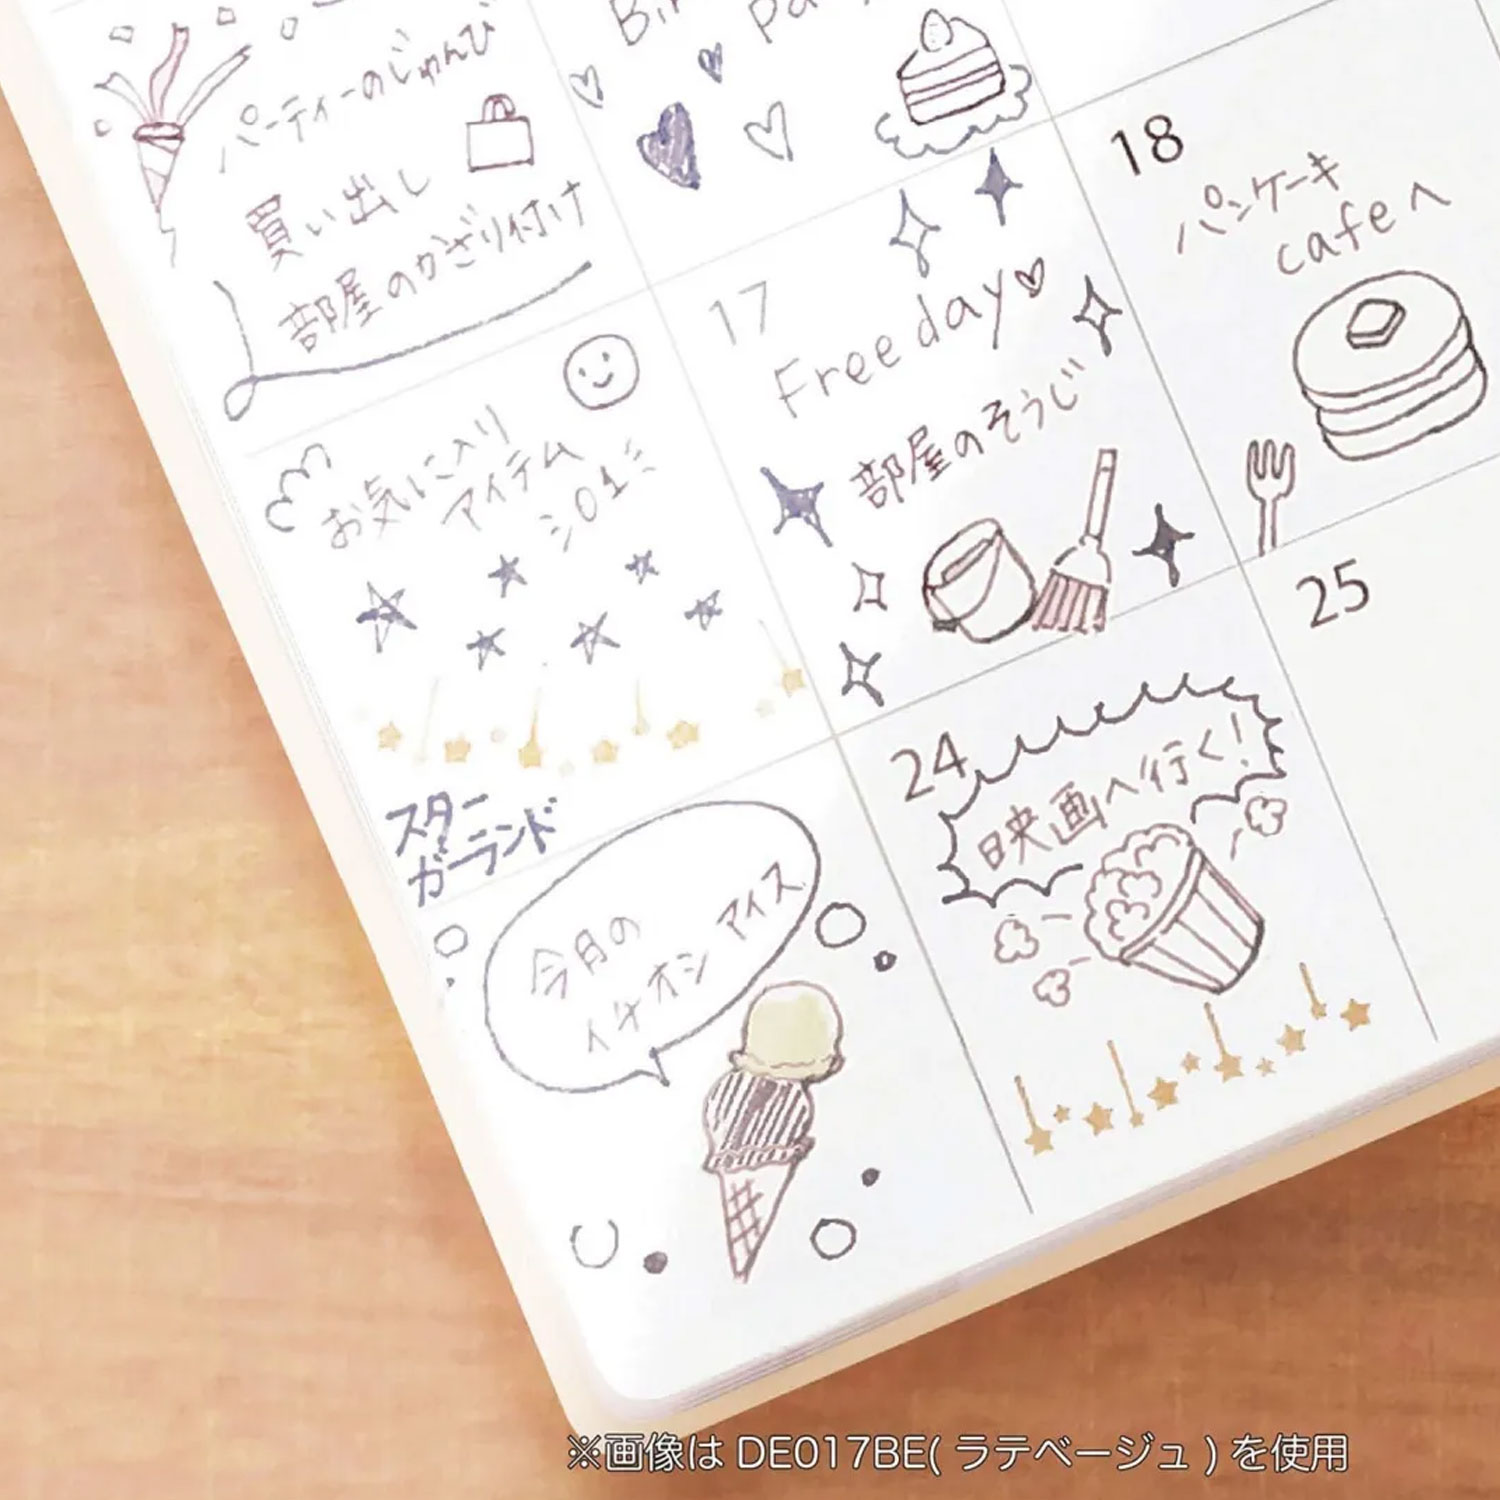 パーティーのじゅんび
買い出し
部屋のかざり付け
17
Free day♡
部屋のそうじ
18
パンケーキ
cafeへ
お気に入り
アイテム
スター
ガーランド
24
映画へ行く!
25
今月の
イチオシ アイス
※画像は DE017BE( ラテベージュ ) を使用